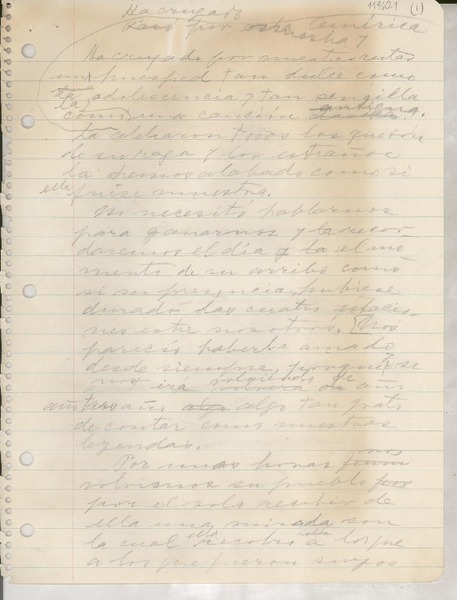 11960.1 (1)
Ha cruzado
Pasó por esta América
nuestra y
Ha cruzado por nuestras rutas
un huésped tan dulce como
la adolescencia y tan sencilla
como una canción
la celebraron todos los que son
de su raza y los extraños
la hemos alabado como si
ella fuese nuestra.
No necesitó hablarnos
para ganarnos y la recor
daremos el día y el mo
mento de su arribo como
si su presencia hubiese
durado las cuatro estacio
nes entre nosotros. Nos
pareció haberla amado
desde siempre, porque se
nos ira volviendo de
año tras año algo tan grato
de contar como nuestras
leyendas.
Por unas horas nos
volvimos su pueblo
por el solo recibir de
ella una mirada con
la cual ella recobra a los que
a los que fueron suyos